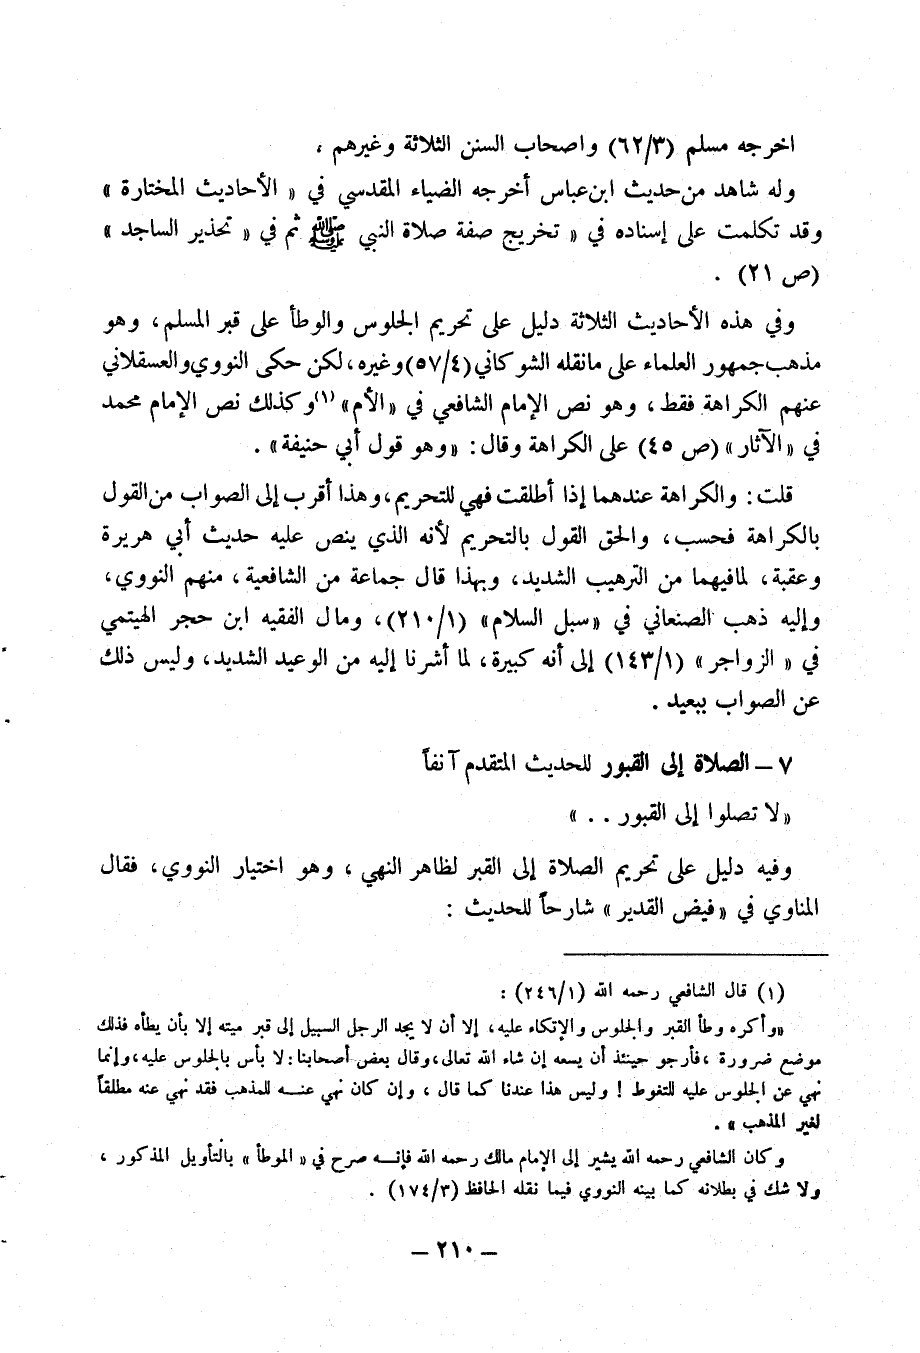 اخرجه مسلم (٦٢/٣) واصحاب السنن الثلاثة وغيرهم ،
وله شاهد من حديث ابن عباس أخرجه الضياء المقدسي في « الأحاديث المختارة »
وقد تكلمت على إسناده في « تخريج صفة صلاة النبي ﷺ ثم في « تحذير الساجد »
(ص ٢١) .
وفي هذه الأحاديث الثلاثة دليل على تحريم الجلوس والوطأ على قبر المسلم، وهو
مذهب جمهور العلماء على مانقله الشوكاني (٥٧/٤) وغيره، لكن حكى النووي والعسقلاني
عنهم الكراهة فقط، وهو نص الإمام الشافعي في «الأم» (١) وكذلك نص الإمام محمد
في «الآثار» (ص ٤٥) على الكراهة وقال: «وهو قول أبي حنيفة» .
قلت: والكراهة عندهما إذا أطلقت فهي للتحريم، وهذا أقرب إلى الصواب من القول
بالكراهة فحسب، والحق القول بالتحريم لأنه الذي ينص عليه حديث أبي هريرة
وعقبة، لمافيهما من الترهيب الشديد، وبهذا قال جماعة من الشافعية، منهم النووي،
وإليه ذهب الصنعاني في «سبل السلام» (٢١٠/١)، ومال الفقيه ابن حجر الهيتمي
في « الزواجر» (١٤٣/١) إلى أنه كبيرة، لما أشرنا إليه من الوعيد الشديد، وليس ذلك
عن الصواب ببعيد .
٧ – الصلاة إلى القبور للحديث المتقدم آنفاً
«لا تصلوا إلى القبور . . »
وفيه دليل على تحريم الصلاة إلى القبر لظاهر النهي ، وهو اختيار النووي، فقال
المناوي في «فيض القدير» شارحاً للحديث :
(١) قال الشافعي رحمه الله (٢٤٦/١) :
«وأكره وطأ القبر والجلوس والإتكاء عليه، إلا أن لا يجد الرجل السبيل إلى قبر ميته إلا بأن يطأه فذلك
موضع ضرورة ،فأرجو حينئذ أن يسعه إن شاء الله تعالى،وقال بعض أصحابنا: لا بأس بالجلوس عليه،وإنما
نهي عن الجلوس عليه للتغوط ! وليس هذا عندنا كما قال ، وإن كان نهي عنه للمذهب فقد نهي عنه مطلقاً
لغير المذهب » .
وكان الشافعي رحمه الله يشير إلى الإمام مالك رحمه الله فإنه صرح في « الموطأ » بالتأويل المذكور ،
ولا شك في بطلانه كما بينه النووي فيما نقله الحافظ (١٧٤/٣) .
– ٢١٠ –